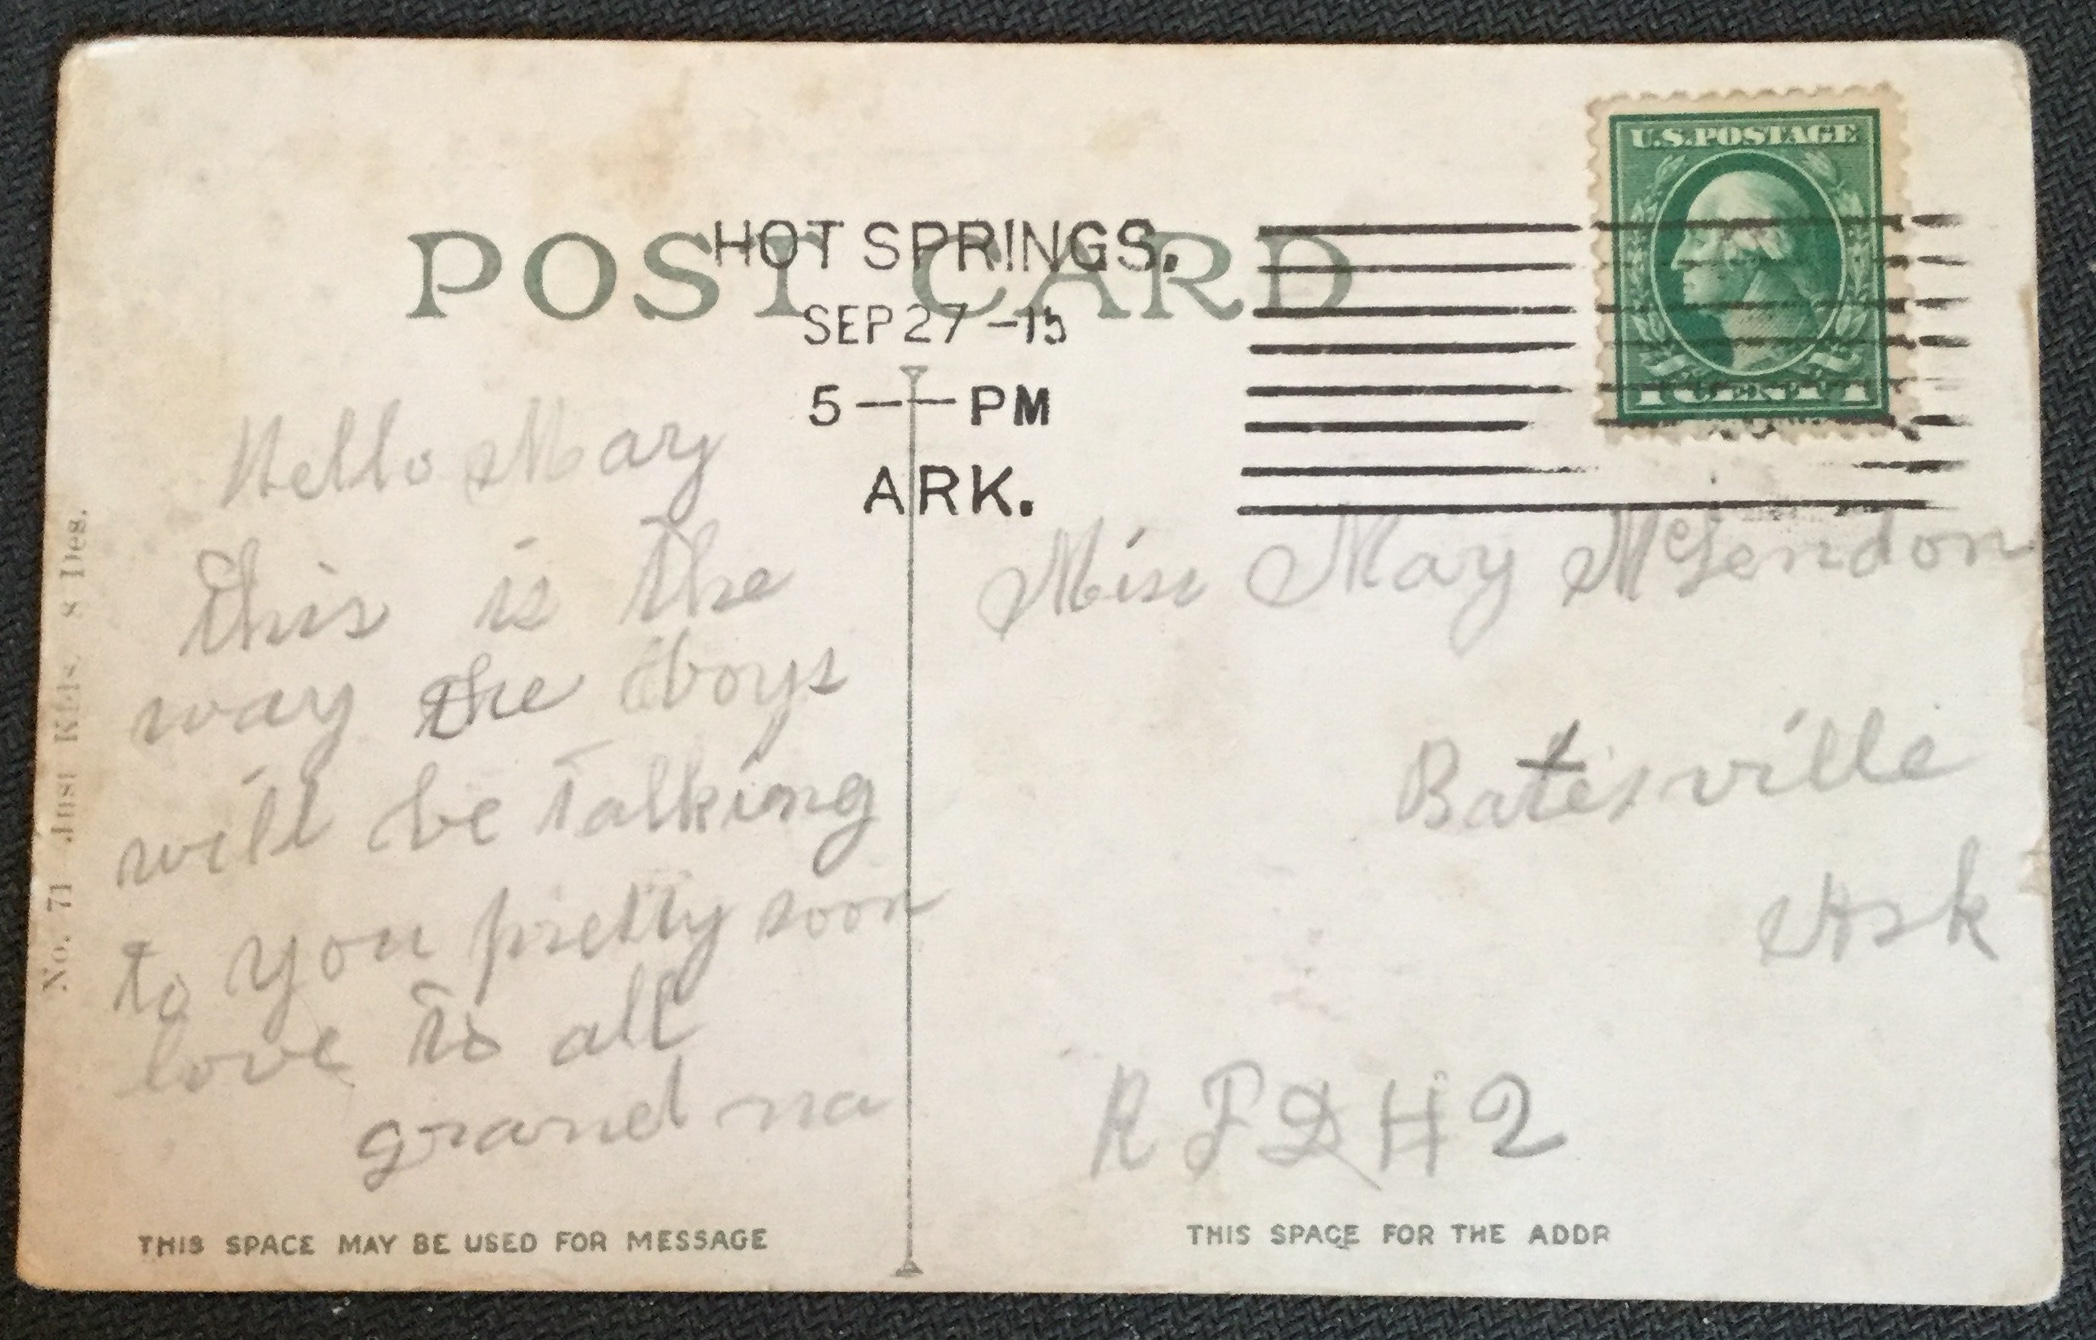 POST CARD
HOT SPRINGS.
SEP 27 -15
5 — PM
ARK.
U.S. POSTAGE
1 CENT 1
Hello May
This is the
way the boys
will be talking
to you pretty soon
love to all
grand ma
Miss May McLendon
Batesville
Ark
R F D # 2
No. 71 Just Kids. 8 Des.
THIS SPACE MAY BE USED FOR MESSAGE
THIS SPACE FOR THE ADDR